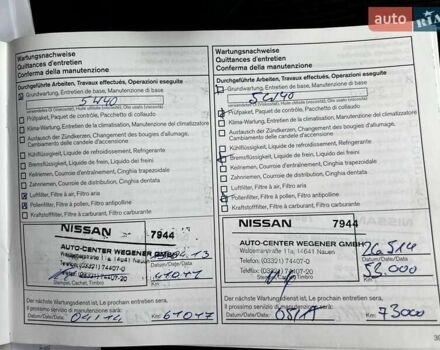 auto RIA
Wartungsnachweise
Quittances d'entretien
Conferma della manutenzione
Durchgeführte Arbeiten, Travaux effectués, Operazioni eseguite
Grundwartung, Entretien de base, Manutenzione di base
5W40
verwendetes Öl (Viscosité), Huile utilisée (viscosité)
Prüfpaket, Paquet de contrôle, Pacchetto di collaudo
Klima-Wartung, Entretien de la climatisation, Manutenzione del climatizzatore
Austausch der Zündkerzen, Changement des bougies d'allumage,
Cambiamento delle candele d'accensione
Kühlflüssigkeit, Liquide de refroidissement, Refrigerante
Bremsflüssigkeit, Liquide de frein, Liquido dei freini
Keilriemen, Courroie d'entraînement, Cinghia trapezoidale
Zahnriemen, Courroie de distribution, Cinghia dentata
Luftfilter, Filtre à air, Filtro aria
Pollenfilter, Filtre à pollen, Filtro antipolline
Kraftstofffilter, Filtre à carburant, Filtro carburante
NISSAN 7944
AUTO-CENTER WEGENER GMBH
14641 Nauen
Tel. (03321) 74407-0
74407-20
Stempel, Cachet, Timbro
Datum/Date/Data
Km:
Der nächste Wartungsdienst ist, Le prochain entretien sera,
Il prossimo servizio di manutenzione sarà:
Datum/Date/Data 04/14 Km: 61017
Wartungsnachweise
Quittances d'entretien
Conferma della manutenzione
Durchgeführte Arbeiten, Travaux effectués, Operazioni eseguite
Grundwartung, Entretien de base, Manutenzione di base
5W40
Prüfpaket, Paquet de contrôle, Pacchetto di collaudo
Klima-Wartung, Entretien de la climatisation, Manutenzione del climatizzatore
Austausch der Zündkerzen, Changement des bougies d'allumage,
Cambiamento delle candele d'accensione
Kühlflüssigkeit, Liquide de refroidissement, Refrigerante
Bremsflüssigkeit, Liquide de frein, Liquido dei freini
Keilriemen, Courroie d'entraînement, Cinghia trapezoidale
Zahnriemen, Courroie de distribution, Cinghia dentata
Luftfilter, Filtre à air, Filtro aria
Pollenfilter, Filtre à pollen, Filtro antipolline
Kraftstofffilter, Filtre à carburant, Filtro carburante
NISSAN 7944
AUTO-CENTER WEGENER GMBH
14641 Nauen
(03321) 74407-0
74407-20
Stempel, Cachet, Timbro
26.5.14
Datum/Date/Data
53.000
Km:
Der nächste Wartungsdienst ist, Le prochain entretien sera,
Il prossimo servizio di manutenzione sarà:
Datum/Date/Data Km: 73000
30